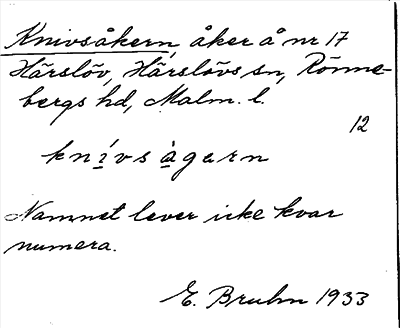 Knivsåkern, åker å nr 17
Härslöv, Härslövs sn, Rönne-
bergs hd, Malm. l.
12
knívsàgarn
Namnet lever icke kvar
numera.
E. Bruhn 1933